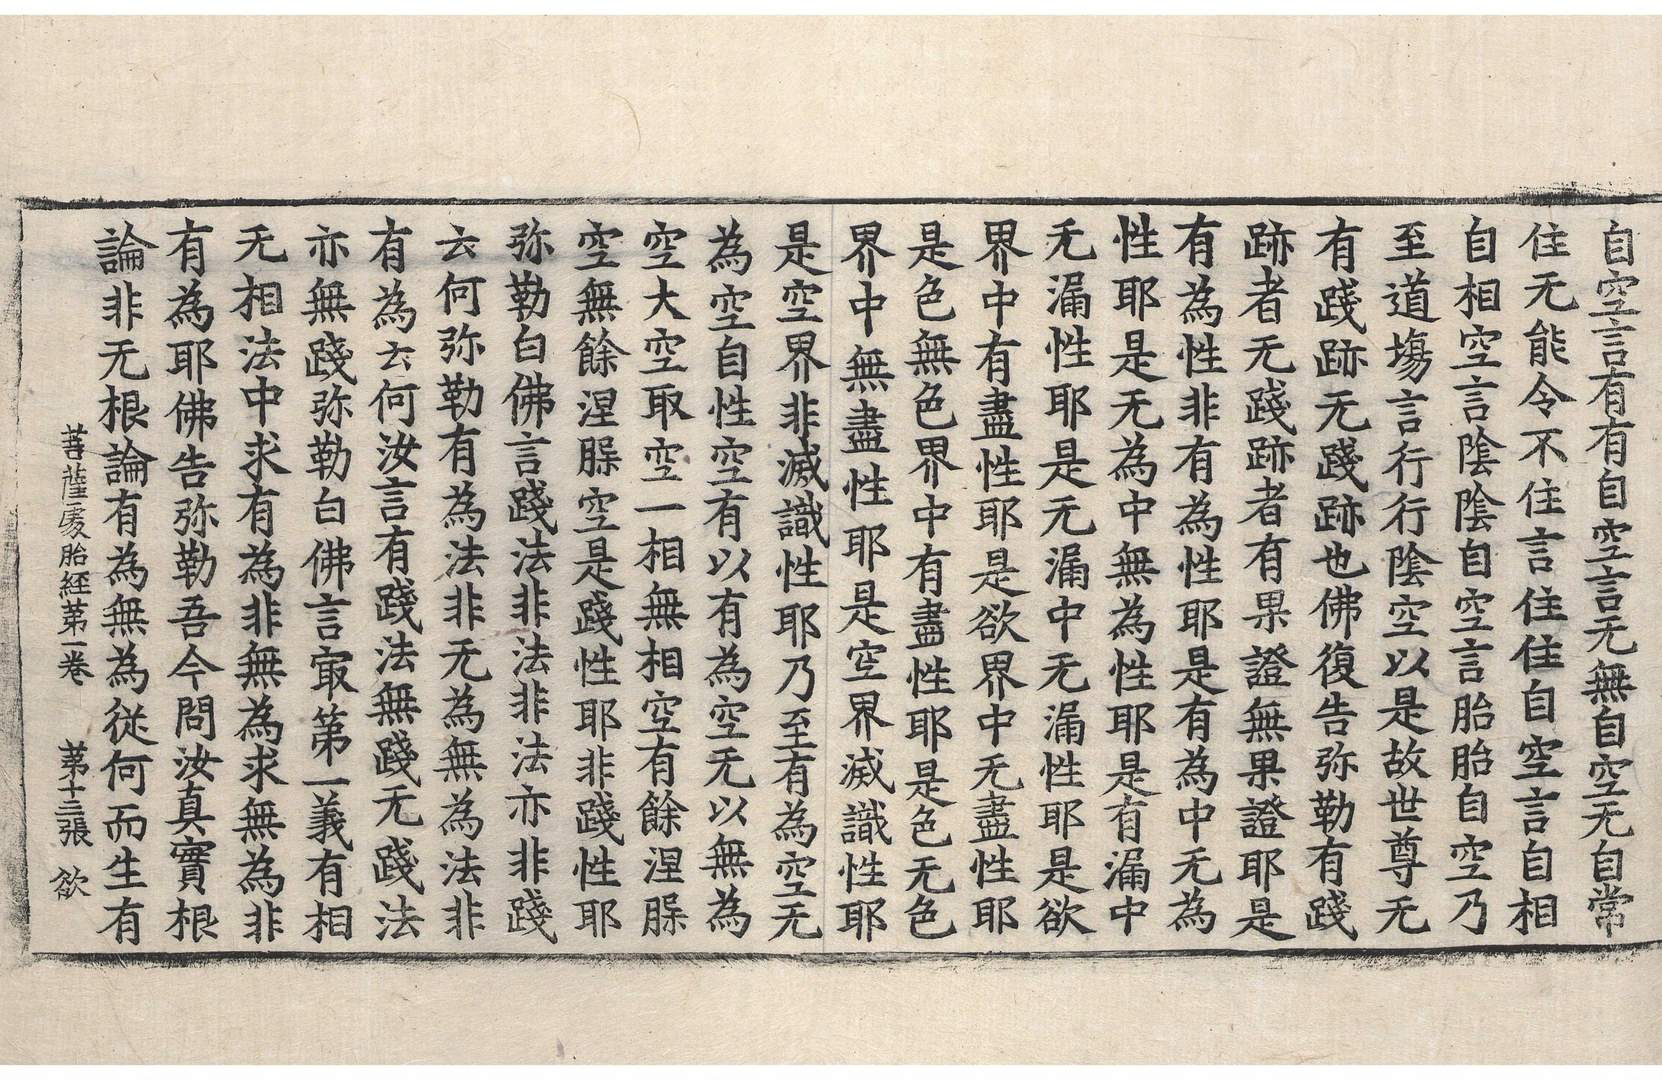 自空言有有自空言无無自空无自常
住无能令不住言住住自空言自相
自相空言陰陰自空言胎胎自空乃
至道塲言行行陰空以是故世尊无
有踐跡无踐跡也佛復告弥勒有踐
跡者无踐跡者有果證無果證耶是
有為性非有為性耶是有為中无為
性耶是无為中無為性耶是有漏中
无漏性耶是无漏中无漏性耶是欲
界中有盡性耶是欲界中无盡性耶
是色無色界中有盡性耶是色无色
界中無盡性耶是空界滅識性耶
是空界非滅識性耶乃至有為空无
為空自性空有以有為空无以無為
空大空取空一相無相空有餘涅槃
空無餘涅槃空是踐性耶非踐性耶
弥勒白佛言踐法非法非法亦非踐
云何弥勒有為法非无為無為法非
有為云何汝言有踐法無踐无踐法
亦無踐弥勒白佛言㝡第一義有相
无相法中求有為非無為求無為非
有為耶佛告弥勒吾今問汝真實根
論非无根論有為無為從何而生有
菩薩處胎經苐一卷　苐十三張　欲